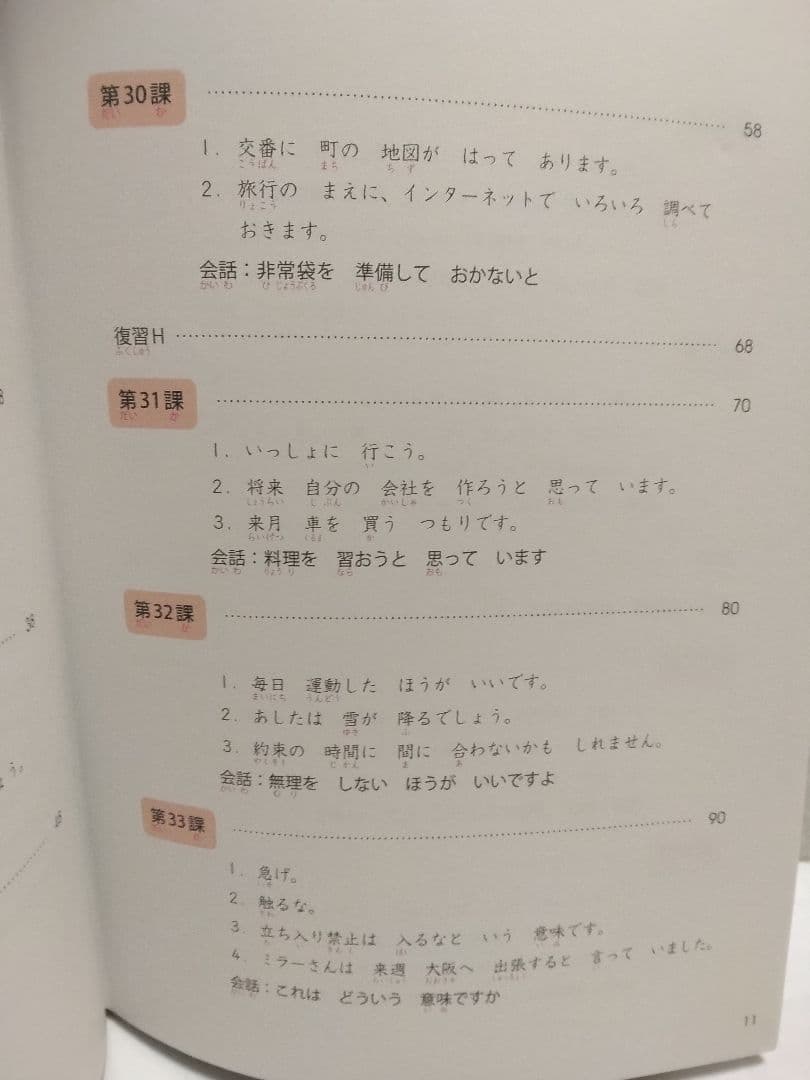 第30課 58
1. 交番に 町の 地図が はって あります。
2. 旅行の まえに、インターネットで いろいろ 調べて
おきます。
会話：非常袋を 準備して おかないと
復習H 68
第31課 70
1. いっしょに 行こう。
2. 将来 自分の 会社を 作ろうと 思って います。
3. 来月 車を 買う つもりです。
会話：料理を 習おうと 思って います
第32課 80
1. 毎日 運動した ほうが いいです。
2. あしたは 雪が 降るでしょう。
3. 約束の 時間に 間に 合わないかも しれません。
会話：無理を しない ほうが いいですよ
第33課 90
1. 急げ。
2. 触るな。
3. 立ち入り禁止は 入るなと いう 意味です。
4. ミラーさんは 来週 大阪へ 出張すると 言って いました。
会話：これは どういう 意味ですか
11